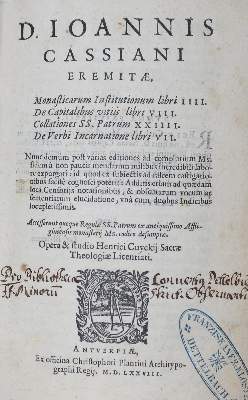 D. IOANNIS
CASSIANI
EREMITÆ,
Monasticarum Institutionum libri IIII.
De Capitalibus vitiis libri VIII.
Collationes SS. Patrum XXIIII.
De Verbi Incarnatione libri VII.
Nunc demum post varias editiones ad complurium Ms.
fidem à non paucis mendarum millibus incredibili labore
expurgati: id quod ex subiectis ad calcem castigationibus
facile cognosci poterit: Additis etiam ad quædam
loca Censoriis notationibus, & obscurorum vocum ac
sententiarum elucidatione, vnà cum duobus Indicibus
locupletissimis.
Accesserunt quoque Regulæ SS. Patrum ex antiquissimo
monasterij Ms. codice desumptæ.
Opera & studio Henrici Cuyckij Sacræ
Theologiæ Licentiati.
Pro Bibliotheca
FF. Minorum
Conventus
Strict. Observant.
FRANZISKANER
DETTELBACH
ANTVERPIÆ,
Ex officina Christophori Plantini Architypographi
Regij. M. D. LXXVIII.